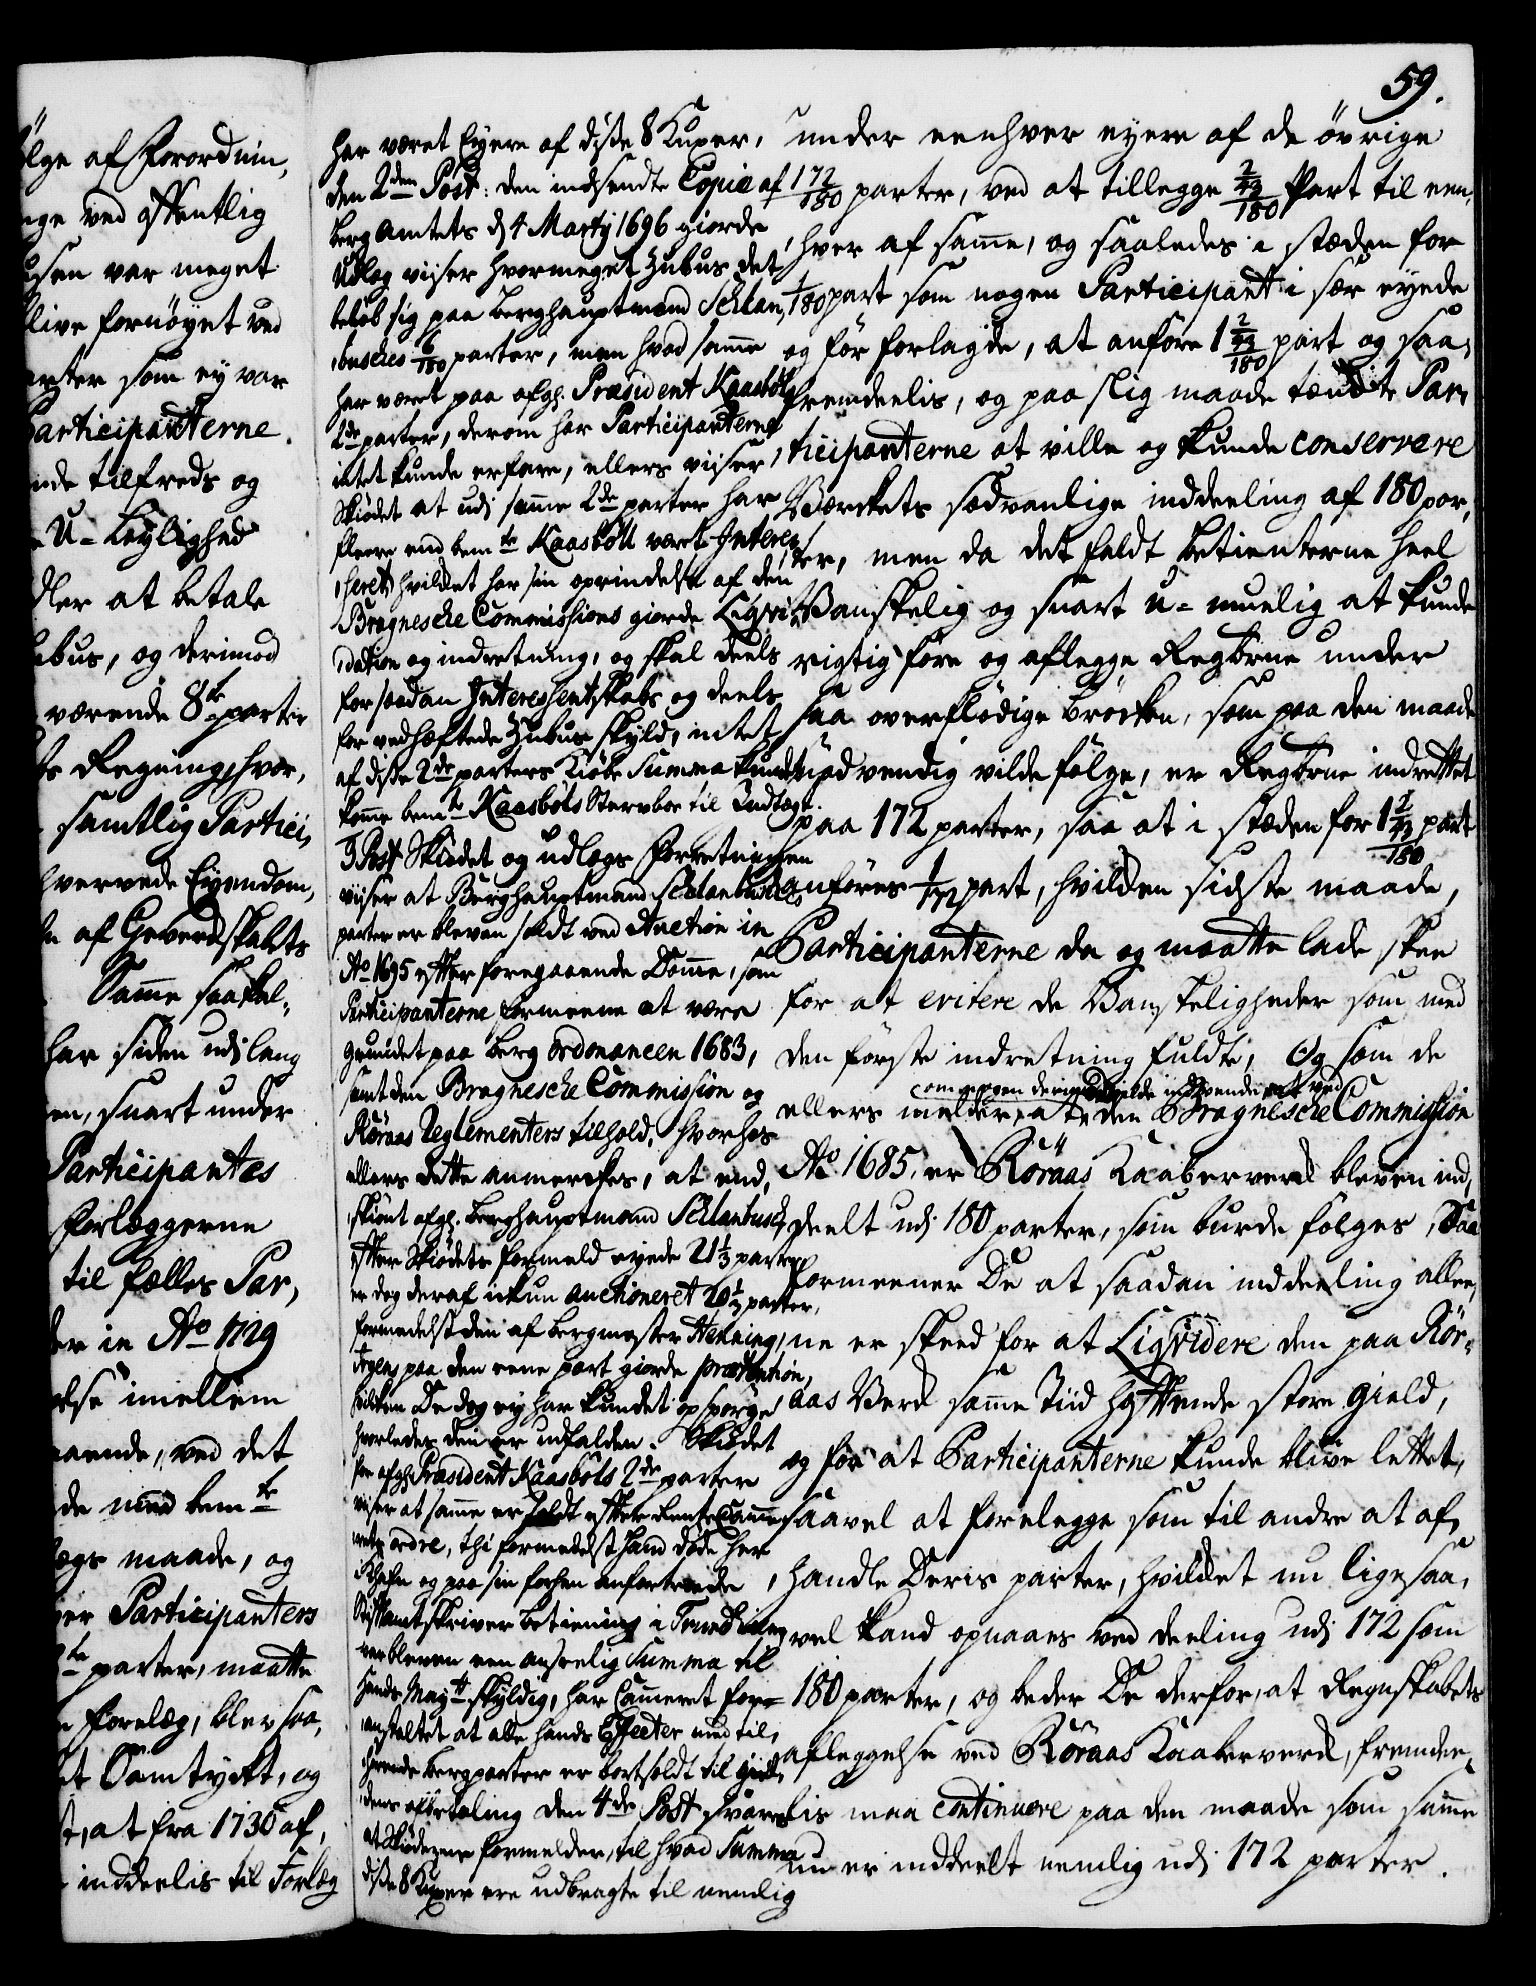 59.
ölge af Forordnin,
nge ved offentlig
usen var meget
blive fornöyet ved
arter som ey var
Participanterne.
nde tilfreds og
U-Leylighed
dler at betale
ubus, og derimod
værende 8te parter
ts Regning, hvor,
samtlig Partici,
hvervede Eyendom,
af Gewerckskabets
Samme saaful,
har siden udj lang
en, snart under
Participantes
Forlæggerne
til fælles Par,
der in Ao 1729
else imellem
aaende, ved det
de med bemte
egs maade, og
er Participanters
te parter, maatte
forelæg, blev saa,
et Samtyckt, og
t, at fra 1730 af,
inddeelis til Forlæg
har været Eyere af disse 8 Kuxer,
den 2den Post: den indsendte Copie af
Berg Amtets d 4 Martij 1696 giorde
Udlæg viiser hvormeget Zubus det
beløb sig paa Berghauptmand Schlan,
busches 6/180 parter, men hvad samme
har været paa afgl. Præsident Kaasböls
2de parter, derom har Participanterne
intet kunde erfare, ellers viiser
Skiødet at udj samme 2de parter har
fleere end bemte Kaasböll vært Interes,
seret, hvilcket har sin oprindelse af den
Bragnesche Commissions giorde Liqvi,
dation og indretning, og skal deels
for saadan Interessentskabs og deels
for vedhæftede Zubus skyld, intet
af disse 2de parters Kiøbe Summa kundt
komme bemte Kaasböls Sterboe til Indtægt.
3 Post Skiødet og udlægs Forretningen
viiser at Berghauptmand Schlanbusches
parter er bleven soldt ved Auction in
Ao 1695 efter foregaaende Domme, som
Participanterne formeene at være
grundet paa Berg ordonancen 1683,
samt den Bragnesche Commission og
Röraas Reglementers tilhold, hvorhos
ellers dette anmerckes, at end,
skiønt afgl. Berghauptmand Schlanbusch,
efter Skiødets formeld eyede 21 1/3 parter,
er dog deraf ickun auctioneret 20 1/3 parter,
formedelst den af Bergmester Henning
Irgens paa den eene part giorde prætention,
hvilken De dog ey har kundet opspørge
hvorledes den er udfalden. Skiødet
for afgl. Præsident Kaasböls 2de parter
viiser at samme er soldt efter Rente Cammer
rets ordre, thi formedelst hand døde her
i Kiøbn og paa sin forhen anfortroede
Stiftamtskriver betiening i Trundhiem
var bleven een anseelig Summa til
Hands Maytt skyldig, har Cameret for=
anstaltet at alle hands Effecter med til,
hørende Bergparter er bortsoldt til gield,
dens afbetaling den 4de Post svares
at Skiøderne formelder, til hvad Summa
disse 8 Kuxer ere udbragte til nemlig
under eenhver eyere af de övrige
172/180 parter, ved at tillegge 2/43/180 Part til een,
hver af samme, og saaledes i stæden for
1/180 part som nogen Participant i sær eyede
og før forlagde, at anføre 1 2/43/180 part og saa,
fremdeelis, og paa slig maade tænckte Par,
ticipanterne at ville og kunde conservere
Værckets sædvanlige inddeeling af 180 par,
ter, men da det faldt betienterne heel
Vanskelig og snart u=muelig at kunde
rigtig føre og aflegge Regbrne under
saa overflødige Brøcken, som paa den maade
nødvendig vilde følge, er Regbrne indrettet
paa 172 parter, saa at i stæden for 1 2/43/180 part
anføres 1/172 part, hvilcken sidste maade,
Participanterne da og maatte lade skee
for at evitere de Vanskeligheder som med
den første indretning fuldte, Og som de
om nogen derimod vilde indvende at ved
ellers melder, at den Bragnesche Commission
Ao 1685. er Röraas Kaaberverck bleven ind,
deelt udj 180 parter, som burde følges, Saa
formeener De at saadan inddeeling allee,
ne er skeed for at Liqvidere den paa Rör=
aas Verck samme Tiid hæftende store gield,
og for at Participanterne kunde blive lettet,
saavel at forelegge som til andre at af,
handle Deris parter, hvilcket nu ligesaa,
vel kand opnaaes ved deeling udj 172 som
180 parter, og beder De derfor, at Regnskabets
afleggelse ved Röraas Kaaberverck, fremdee,
lis maa continuere paa den maade som samme
nu er inddeelt nemlig udj 172 parter.